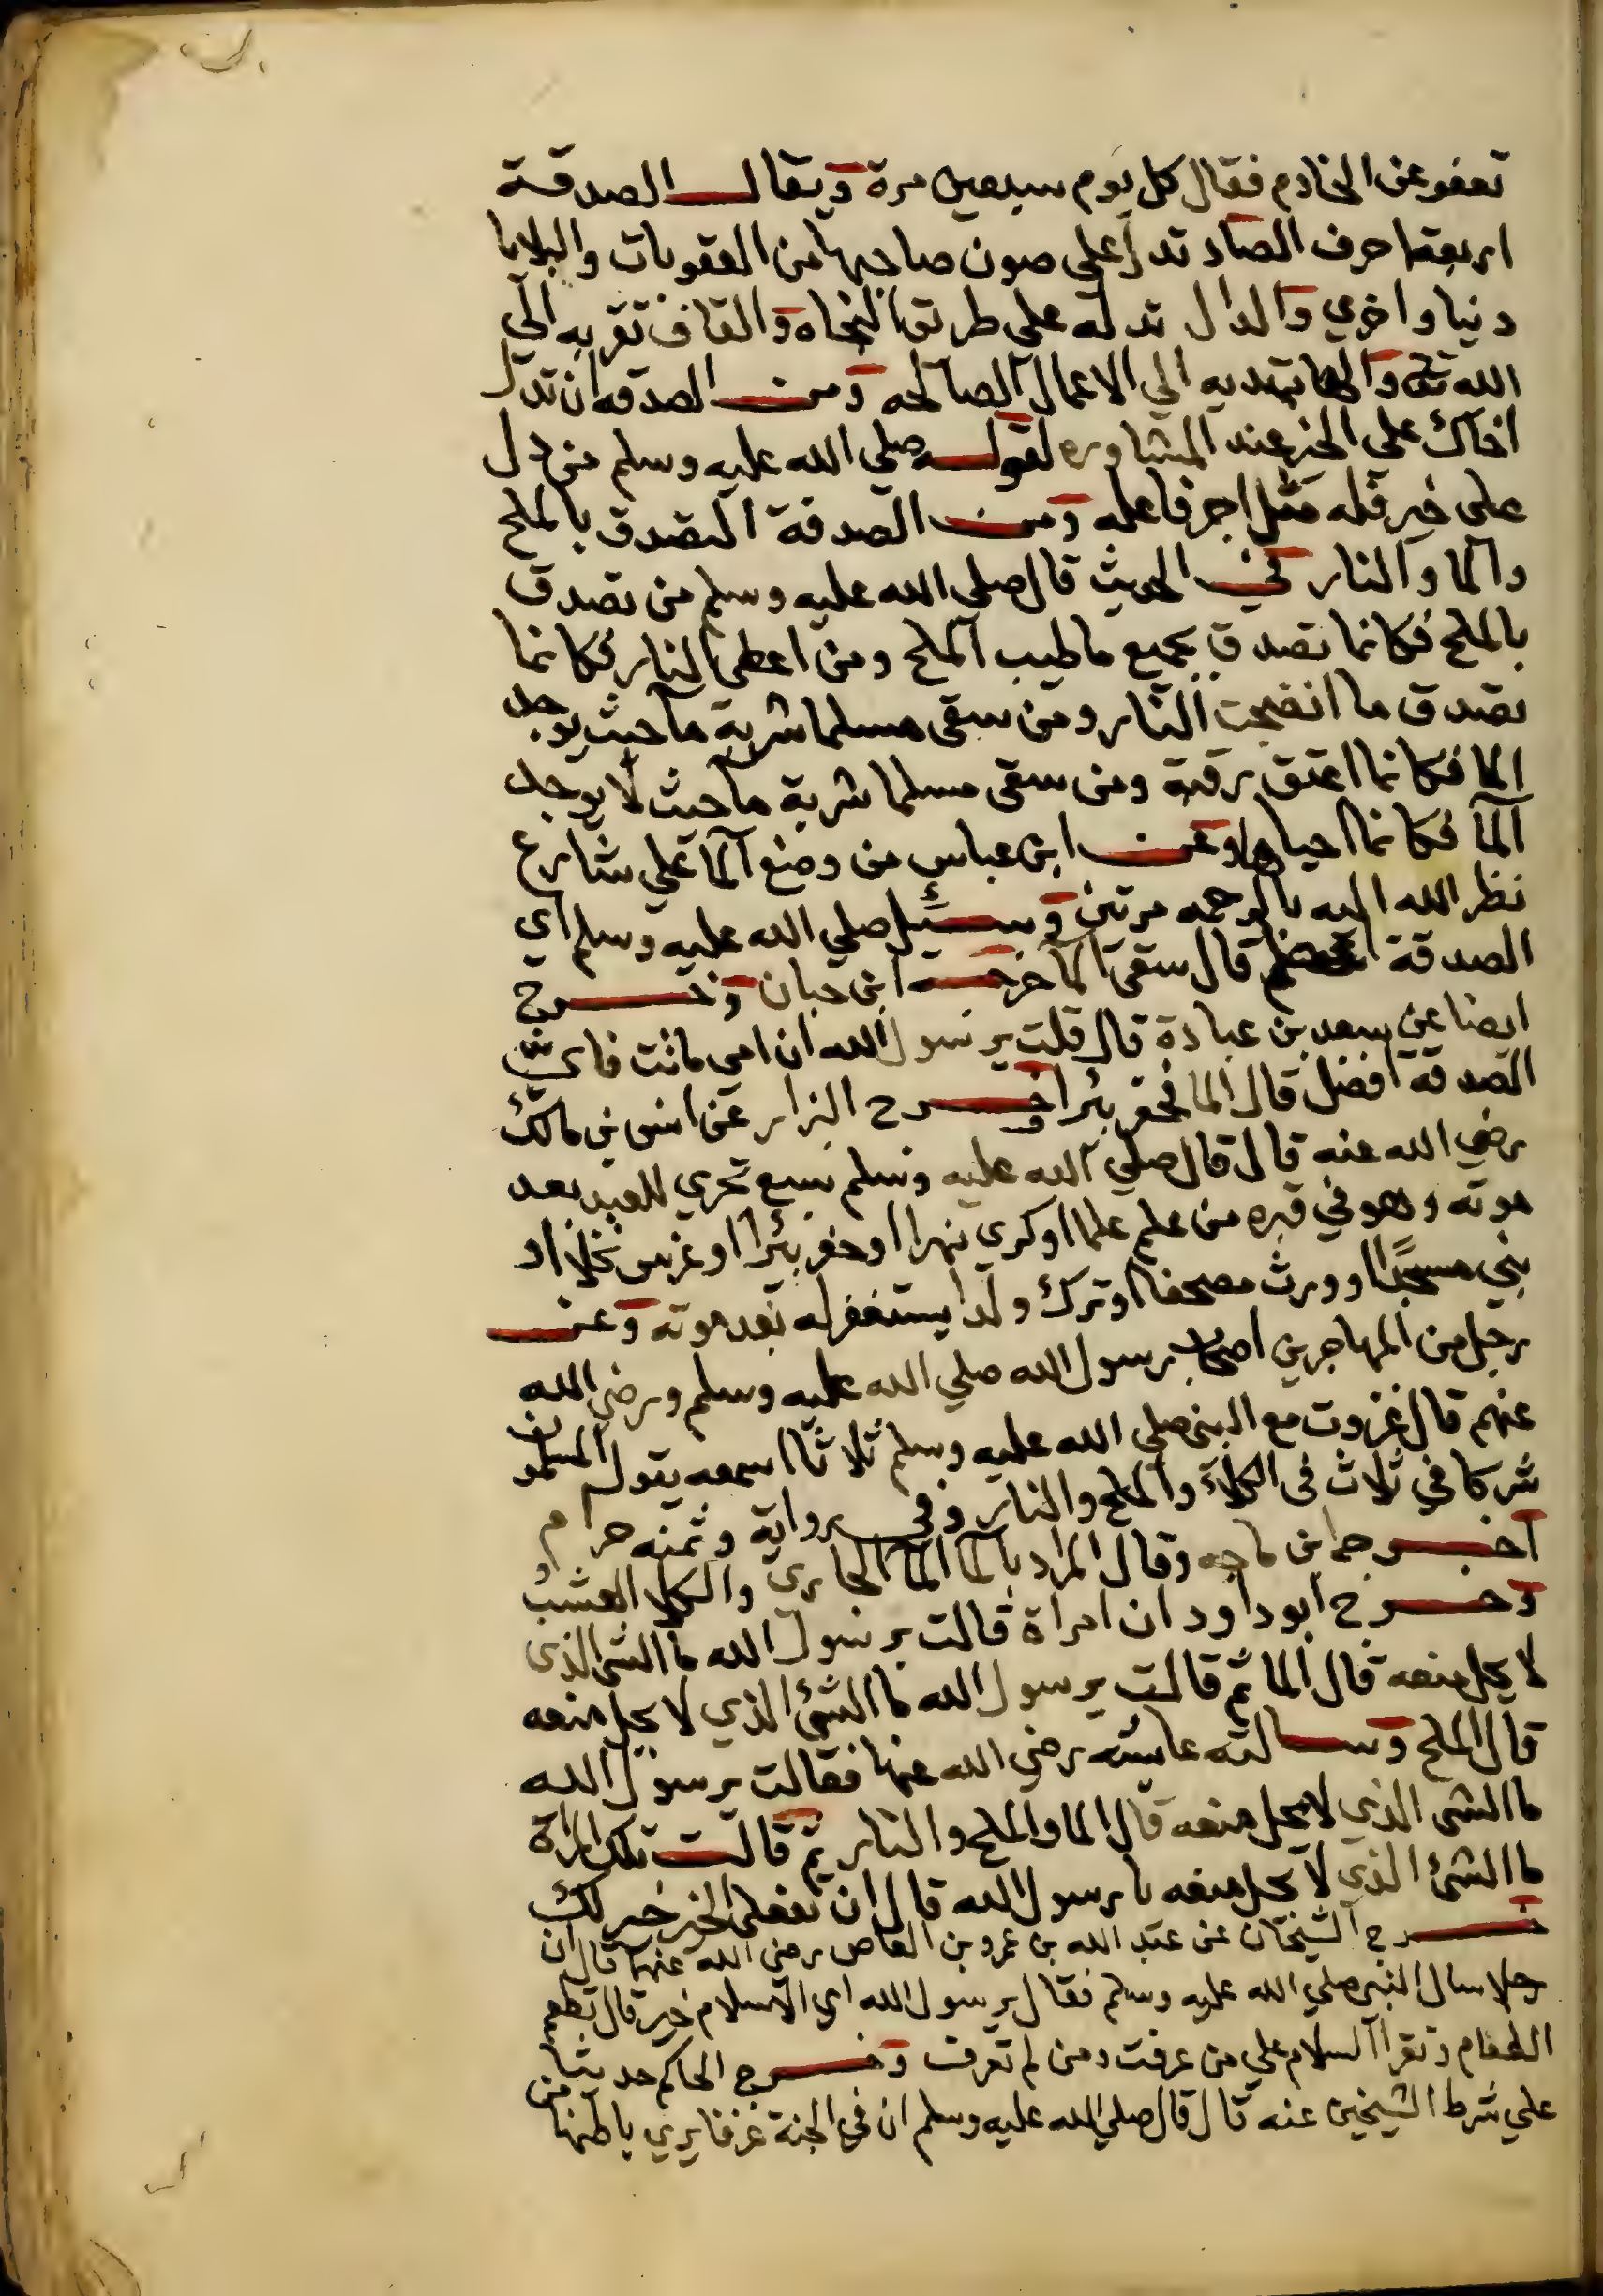 تعفو عن الخادم فقال كل يوم سبعين مرة ويقال الصدقة
اربعة احرف الصاد تدل على صون صاحبها من العقوبات والبلايا
دنيا واخري والدال تدله على طريق النجاة والقاف تقربه الي
الله تعالى والها تهديه الي الاعمال الصالحه ومن الصدقه ان تدل
اخاك علي الخير عند المشاوره لقوله صلي الله عليه وسلم من دل
على خير فله مثل اجر فاعله ومن الصدقة التصدق بالملح
والما والنار ففي الحديث قال صلي الله عليه وسلم من تصدق
بالملح فكانما تصدق بجميع ما طيب الملح ومن اعطى النار فكانما
تصدق ما انضجت النار ومن سقى مسلما شربة ما حيث يوجد
الما فكانما اعتق رقبة ومن سقى مسلما شربة ما حيث لا يوجد
الما فكانما احياها وعن ابن عباس من وضع الما علي شارع
نظر الله اليه بالرحمه مرتين وسئل صلي الله عليه وسلم اي
الصدقة اعظم قال سقي الما خرجه ابن حبان وخرج
ايضا عن سعد بن عبادة قال قلت يرسول الله ان امي ماتت فاي
الصدقة افضل قال الما فحفر بئرا وخرج البزار عن انس بن مالك
رضي الله عنه قال قال صلي الله عليه وسلم سبع تجري للعبد بعد
موته وهو في قبره من علم علما او كري نهرا او حفر بئرا او غرس نخلا او
بني مسجدًا او ورث مصحفا او ترك ولدا يستغفر له بعد موته وعن
رجل من المهاجرين اصحاب رسول الله صلي الله عليه وسلم ورضي الله
عنهم قال غزوت مع النبي صلي الله عليه وسلم ثلاثا اسمعه يقول المسلمون
شركا في ثلاث في الكلاء والملح والنار وفي رواية وثمنه حرام
اخرجه ابن ماجه وقال المراد بالما الما الجاري والكلا العشب
وخرج ابو داود ان امراة قالت يرسول الله ما الشئ الذي
لا يحل منعه قال الما ثم قالت يرسول الله ما الشئ الذي لا يحل منعه
قال الملح وسالته عائشه رضي الله عنها فقالت يرسول الله
ما الشئ الذي لا يحل منعه قال الما والملح والنار ثم قالت تلك المراة
ما الشئ الذي لا يحل منعه يا رسول الله قال ان تفعلي الخير خير لك
خرج الشيخان عن عبد الله بن عمرو بن العاص رضي الله عنهما قال ان
رجلا سال النبي صلي الله عليه وسلم فقال يرسول الله اي الاسلام خير قال تطعم
الطعام وتقرا السلام علي من عرفت ومن لم تعرف وخرج الحاكم حديثا
علي شرط الشيخين عنه قال قال صلي الله عليه وسلم ان في الجنة غرفا يري باطنها من